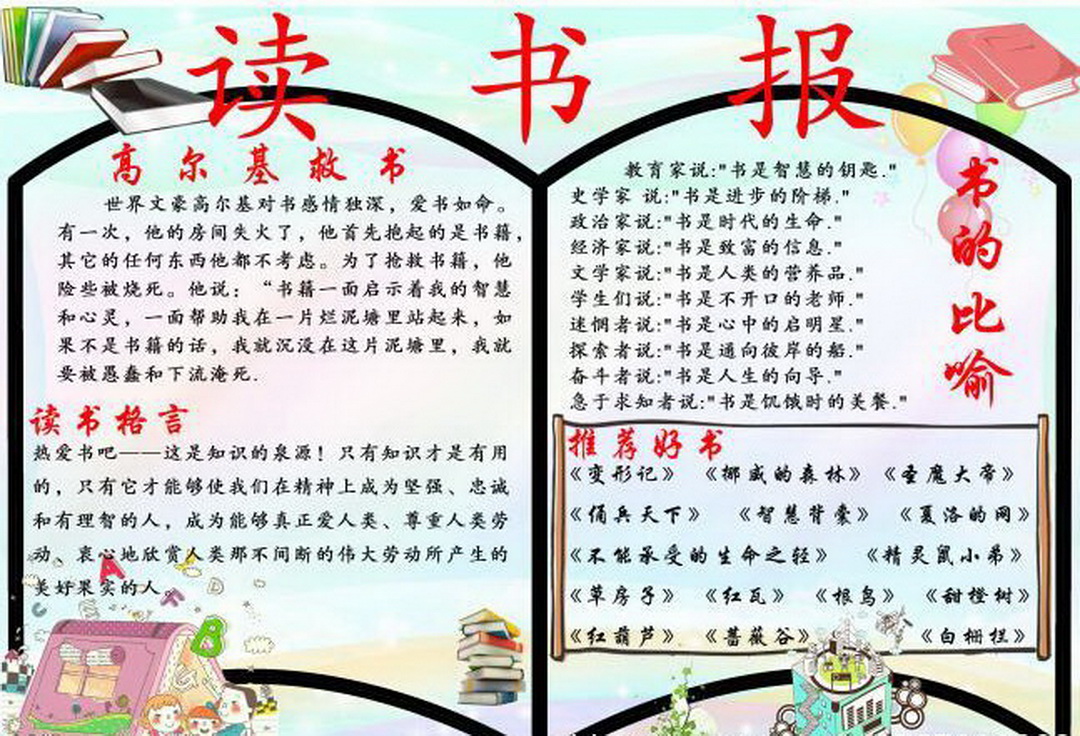 读书报
高尔基救书
世界文豪高尔基对书感情独深，爱书如命。
有一次，他的房间失火了，他首先抱起的是书籍，
其它的任何东西他都不考虑。为了抢救书籍，他
险些被烧死。他说：“书籍一面启示着我的智慧
和心灵，一面帮助我在一片烂泥塘里站起来，如
果不是书籍的话，我就沉没在这片泥塘里，我就
要被愚蠢和下流淹死.
读书格言
热爱书吧——这是知识的泉源！只有知识才是有用
的，只有它才能够使我们在精神上成为坚强、忠诚
和有理智的人，成为能够真正爱人类、尊重人类劳
动、衷心地欣赏人类那不间断的伟大劳动所产生的
美好果实的人。
书的比喻
教育家说:"书是智慧的钥匙."
史学家 说:"书是进步的阶梯."
政治家说:"书是时代的生命."
经济家说:"书是致富的信息."
文学家说:"书是人类的营养品."
学生们说:"书是不开口的老师."
迷惘者说:"书是心中的启明星."
探索者说:"书是通向彼岸的船."
奋斗者说:"书是人生的向导."
急于求知者说:"书是饥饿时的美餐."
推荐好书
《变形记》 《挪威的森林》 《圣魔大帝》
《佣兵天下》 《智慧背囊》 《夏洛的网》
《不能承受的生命之轻》 《精灵鼠小弟》
《草房子》 《红瓦》 《根鸟》 《甜橙树》
《红葫芦》 《蔷薇谷》 《白栅栏》
A
F
D
B